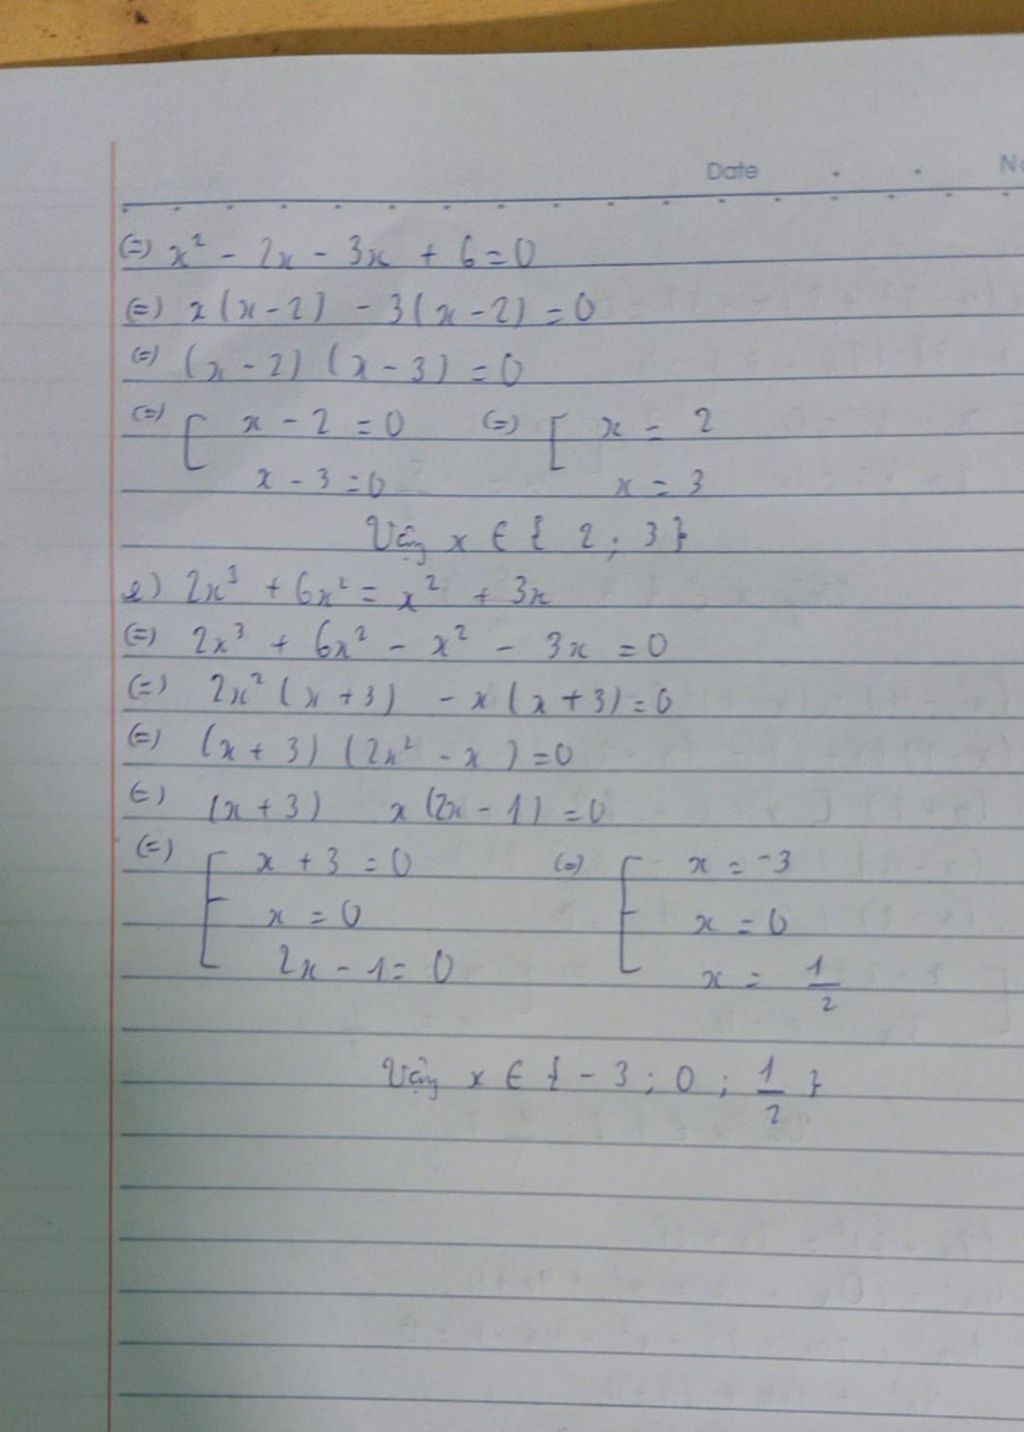 Date
No
(=) x² - 2x - 3x + 6 = 0
(=) x(x-2) - 3(x-2) = 0
(=) (x-2) (x-3) = 0
(=) [ x - 2 = 0 (=) [ x = 2
x - 3 = 0 x = 3
Vậy x ∈ { 2 ; 3 }
e) 2x³ + 6x² = x² + 3x
(=) 2x³ + 6x² - x² - 3x = 0
(=) 2x² (x+3) - x (x+3) = 0
(=) (x+3) (2x² - x) = 0
(=) (x+3) x (2x - 1) = 0
(=) [ x + 3 = 0 (=) [ x = -3
x = 0 x = 0
2x - 1 = 0 x = 1/2
Vậy x ∈ { -3 ; 0 ; 1/2 }